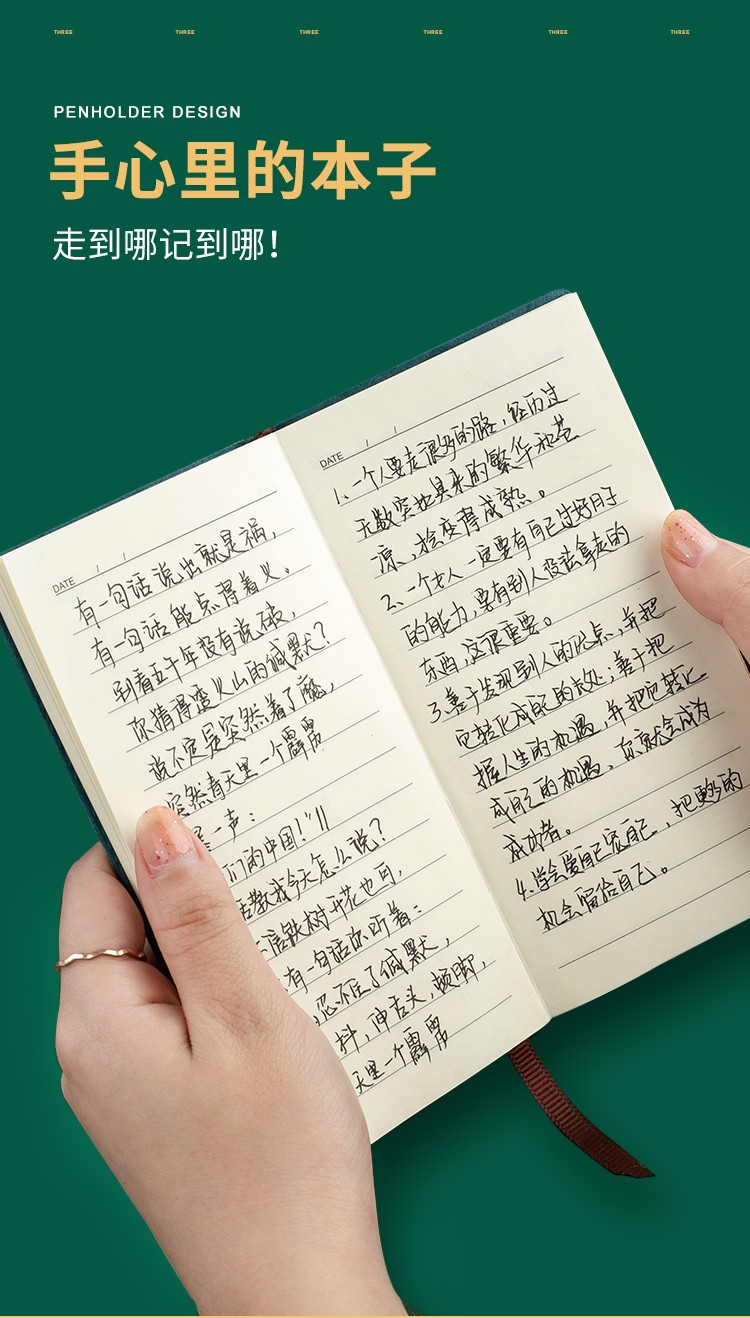 THREE THREE THREE THREE THREE THREE
PENHOLDER DESIGN
手心里的本子
走到哪记到哪!
DATE / /
有一句话说出就是祸,
有一句话能点得着火。
别看五千年没有说破,
你猜得透火山的缄默?
说不定是突然着了魔,
突然青天里一个霹雳
一声:
们的中国!"
话教我今天怎么说?
信铁树开花也可,
有一句话你听着:
忍不住了缄默,
抖,伸舌头,顿脚,
天里一个霹雳
DATE / /
1、一个人要走很多的路,经历过
无数突地其来的繁华和苍
凉,才会变得成熟。
2、一个女人一定要有自己过好日子
的能力,要有别人没法拿走的
东西,这很重要。
3.善于发现别人的优点,并把
它转化成自己的长处;善于把
握人生的机遇,并把它转化
成自己的机遇,你就会成为
成功者。
4.学会爱自己宠自己,把更多的
机会留给自己。